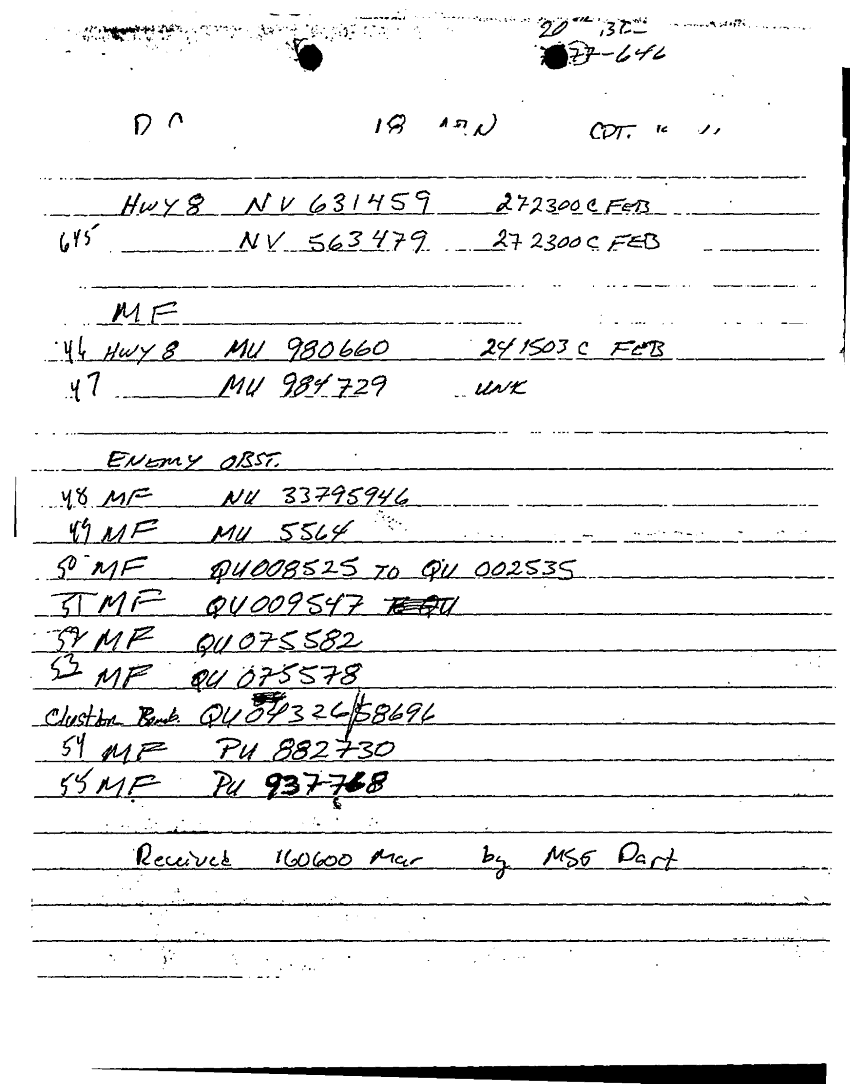 20
77-646
18
HWY 8 NV 631459 272300 C FEB
645 NV 563479 272300 C FEB
MF
46 HWY 8 MU 980660 241503 C FEB
47 MU 984729 UNK
ENEMY OBST.
48 MF NU 33795946
49 MF MU 5564
50 MF QU008525 TO QU 002535
51 MF QU009547
52 MF QU 075582
53 MF QU 075578
Cluster Bomb. QU 04326/58696
54 MF PU 882730
55 MF PU 937768
Received 160600 Mar by MSG Dart